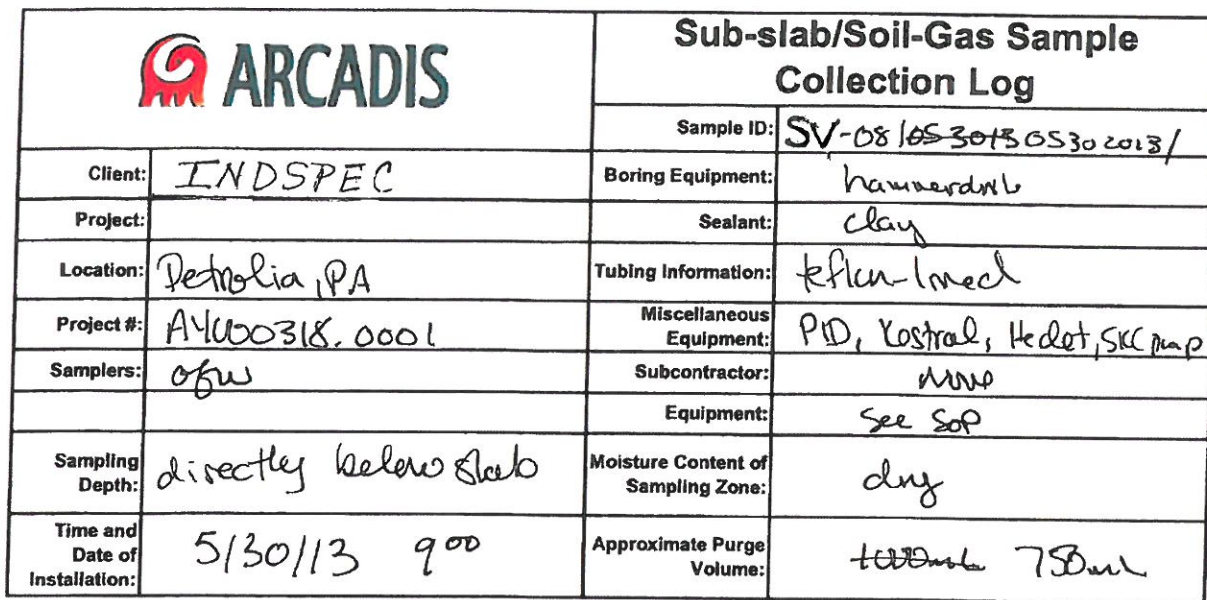 ARCADIS
Sub-slab/Soil-Gas Sample
Collection Log
Sample ID: SV-08/05302013/
Client: INDSPEC
Boring Equipment: hammerdrill
Project:
Sealant: clay
Location: Petrolia, PA
Tubing Information: teflon-lined
Project #: AY000318.0001
Miscellaneous
Equipment: PID, Kestral, He det, SKC pump
Samplers:
Subcontractor: none
Equipment: See SOP
Sampling
Depth: directly below slab
Moisture Content of
Sampling Zone: dry
Time and
Date of
Installation: 5/30/13 9 00
Approximate Purge
Volume: 1000mL 750mL